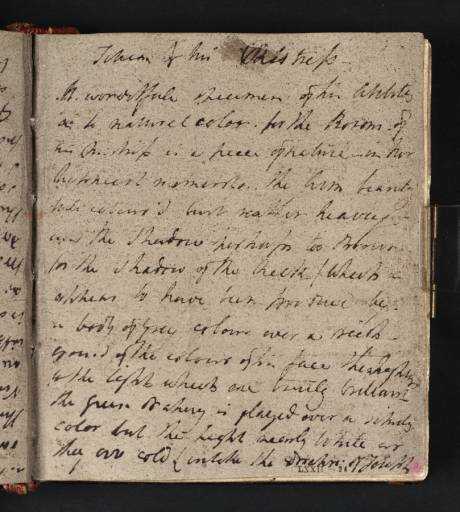 Titian & his Mistress
A wonderfull specimen of his Abilities
as to natural color. for the Bosom of
his Mistress is a piece of nature in her
happiest moments. The Arm beauti
colour'd but rather heavey
the Shadow perhaps to Brown
for the Shadow of the Cheek (which
appears to have been produced by
a body of Grey colour over a rich
ground of the colour of his face throughout
the lights which are truly brilliant
the green Drapery is glazed over a silvery
color but the light nearly White
they are cold (unlike the Drapery of Joseph
LXXII